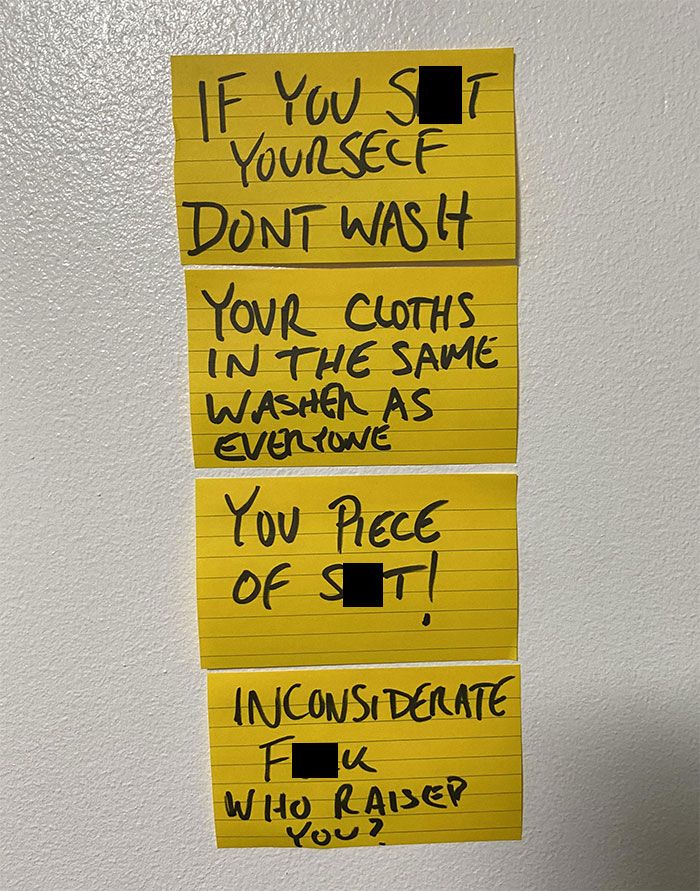 IF YOU S T
YOURSELF
DONT WASH
YOUR CLOTHS
IN THE SAME
WASHER AS
EVERYONE
YOU PIECE
OF S T!
INCONSIDERATE
F K
WHO RAISED
YOU?